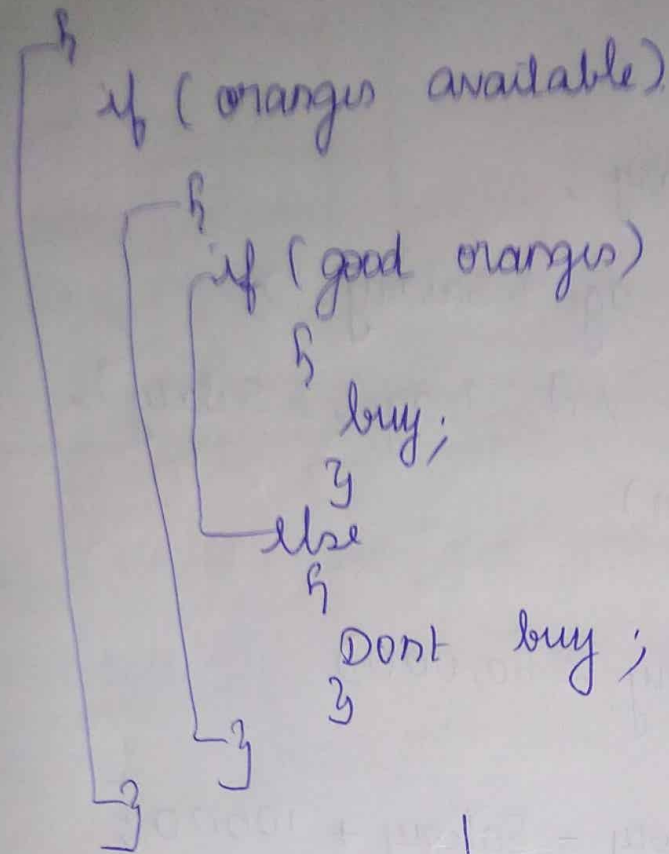 {
if (oranges available)
{
if (good oranges)
{
buy;
}
else
{
Dont buy;
}
}
}